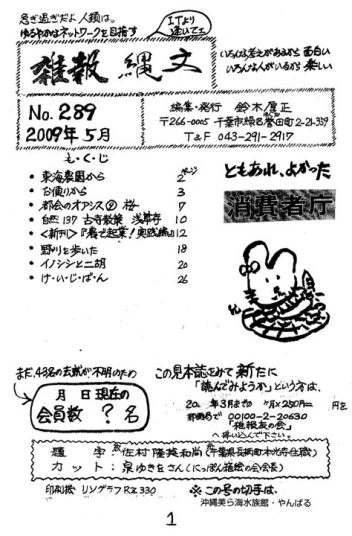 急ぎ過ぎだよ 人類は。
ゆるやかなネットワークを目指す
ITより
速いでェ
雑報 縄文
いろんな考えがあるから 面白い
いろんな人がいるから 楽しい
No. 289
2009年5月
編集・発行 鈴木 厚正
〒266-0005 千葉市緑区誉田町2-21-359
T&F 043-291-2917
も・く・じ
・東海農園から 2ページ
・お便りから 3
・都会のオアシス② 桜 7
・自然137 古寺散策 浅草寺 10
・<新刊>『農で起業!実践編』12
・野川を歩いた 18
・イノシシと二胡 20
・け・い・じ・ばん 26
ともあれ、よかった
消費者庁
まだ、43名の去就が不明のため
月 日 現在の
会員数 ? 名
この見本誌をみて 新たに
「読んでみようか」という方は、
20 年3月までの ヶ月×250円= 円を
郵便局で 00100-2-20630
「雑報友の会」
へ 振り込んで下さい。
題 字:佐村 隆英和尚(千葉県長柄町本光寺住職)
カット:泉ゆきをさん(にっぽん漫絵の会会長)
印刷機 リソグラフRZ330
※この号の切手は、
沖縄美ら海水族館・やんばる
1